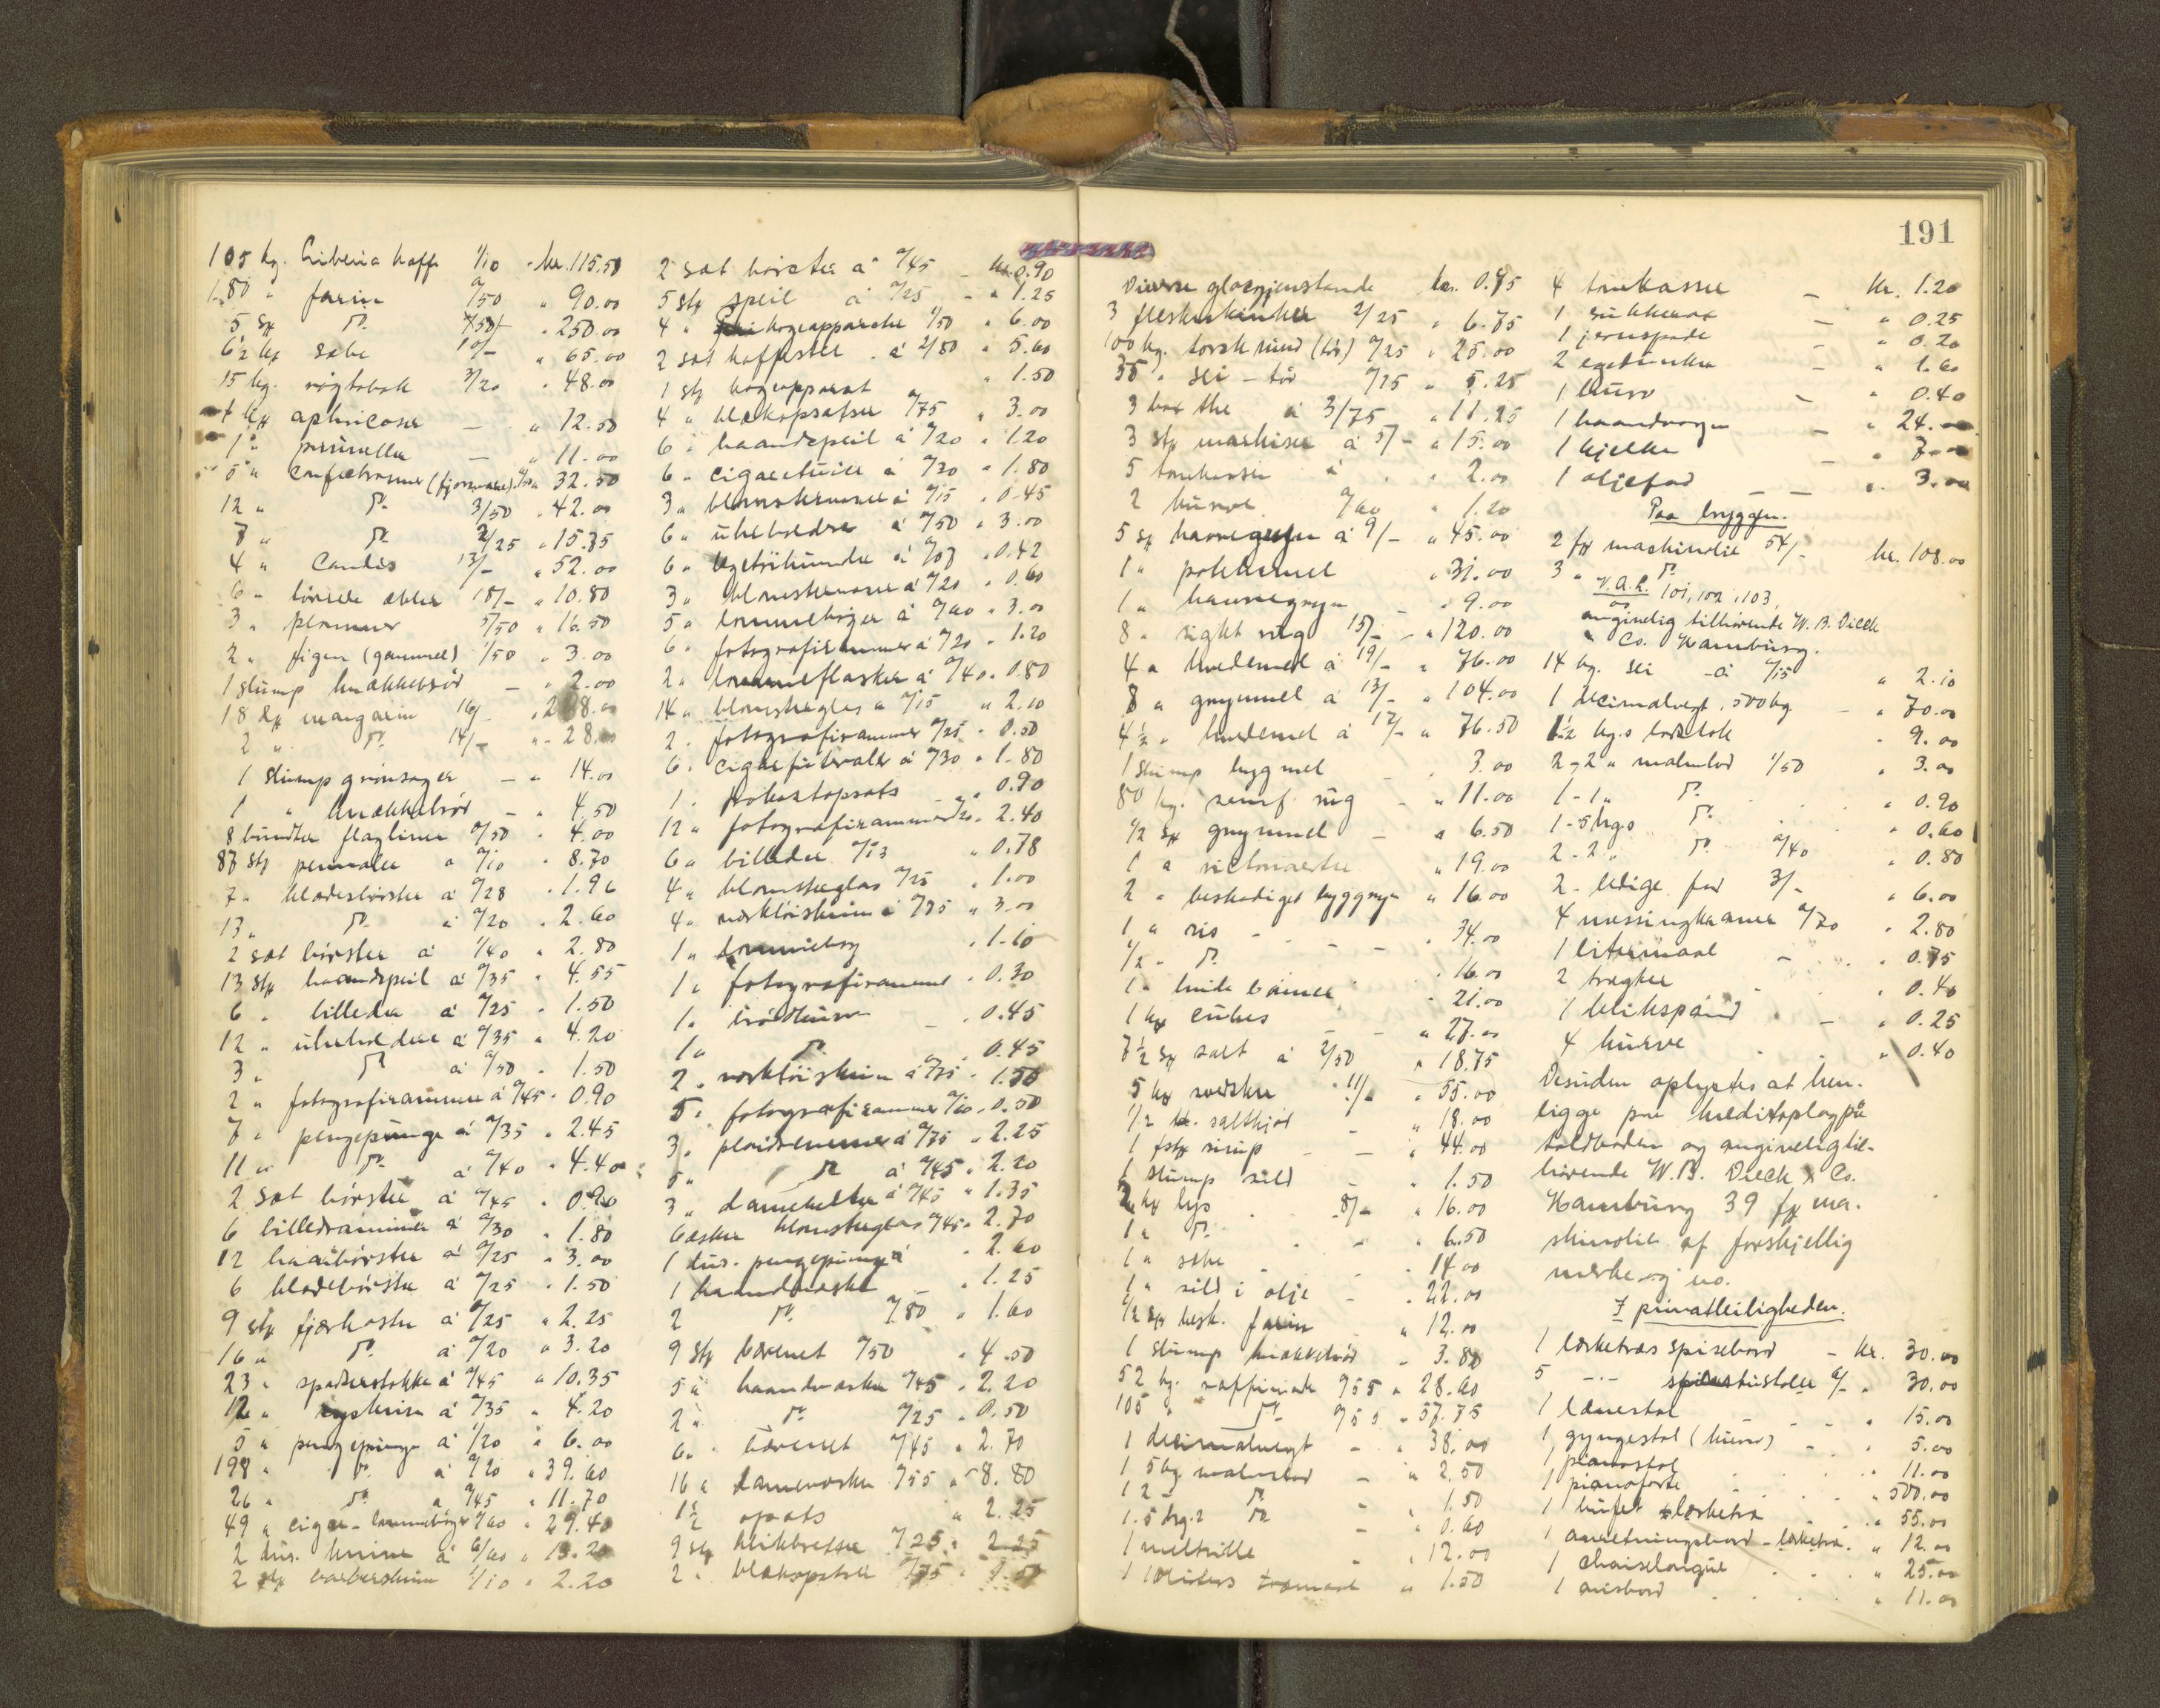 105 kg. Liberia kaffe 1/10 - kr. 115.50
180 " farin "/50 " 90.00
5 sk do. 50/- " 250.00
6½ ks sæbe 10/- " 65.00
15 kg. røgtobak 3/20 " 48.00
1 ks aphricoser — " 12.50
1 " prunella — " 11.00
5 " confectrosiner (fjorsvare) " 32.50
12 " do. 3/50 " 42.00
7 " do. 2/25 " 15.75
4 " Candis 13/- " 52.00
6 " tørrede æbler 18/- " 10.80
3 " plommer 5/50 " 16.50
2 " figen (gammel) 1/50 " 3.00
1 slump knækkebrød — " 2.00
18 ds margarin 16/- " 288.00
2 " do. 14/- " 28.00
1 slump grønsager — " 14.00
1 " knækkebrød — " 4.50
8 bundter flagliner "/50 " 4.00
87 stk pennaler a "/10 " 8.70
7 " klædesbørster á "/28 " 1.96
13 " do. á "/20 " 2.60
2 sæt børster á 1/40 " 2.80
13 stk haandspeil á "/35 " 4.55
6 " billeder á "/25 " 1.50
12 " uhrholdere á "/35 " 4.20
3 " do. á "/50 " 1.50
2 " fotografirammer á "/45 " 0.90
7 " pengepunge á "/35 " 2.45
11 " do. á "/40 " 4.40
2 sæt børster á "/45 " 0.90
6 billedrammer á "/30 " 1.80
12 haarbørster á "/25 " 3.00
6 klædebørster á "/25 " 1.50
9 stk fjærkoster á "/25 " 2.25
16 " do. á "/20 " 3.20
23 " spadserstokke á "/45 " 10.35
12 " syskrin á "/35 " 4.20
5 " pengepunge á 1/20 " 6.00
198 " do. á "/20 " 39.60
26 " do. a "/45 " 11.70
49 " cigar- lommebøger "/60 " 29.40
2 dus. knive á 6/60 " 13.20
2 stk barberskrin 1/10 " 2.20
2 sæt børster á "/45 — kr. 0.90
5 stk speil á "/25 — " 1.25
4 " kogeapparater 1/50 " 6.00
2 sæt kaffestel á 2/80 " 5.60
1 stk kogeapparat " 1.50
4 " blækopsatser "/75 " 3.00
6 " haandspeil á "/20 " 1.20
6 " cigaretuier á "/30 " 1.80
3 " blomstervaser á "/15 " 0.45
6 " uhrholdere á "/50 " 3.00
6 " legetøihunder á "/07 " 0.42
3 " blomstervaser á "/20 " 0.60
5 " lommebøger á "/60 " 3.00
6 " fotografirammer á "/20 " 1.20
2 " lommeflasker á "/40 " 0.80
14 " blomsterglas a "/15 " 2.10
2 " fotografirammer "/25 " 0.50
6 " cigarfutteraler á "/30 " 1.80
1 " frokostopsats — " 0.90
12 " fotografirammer "/20 " 2.40
6 " billeder "/13 " 0.78
4 " blomsterglas "/25 " 1.00
4 " verktøiskrin á "/75 " 3.00
1 " lommebog " 1.10
1 " fotografiramme " 0.30
1 " brødkurv — " 0.45
1 " do. " 0.45
2 " verktøiskrin á "/75 " 1.50
5 " fotografirammer "/10 " 0.50
3 " plaidremmer á "/75 " 2.25
5 " do á "/45 " 2.20
3 " damebelter á "/45 " 1.35
6 æsker blomsterglas "/45 " 2.70
1 dus. pengepunge á " 2.60
1 haandvæske " 1.25
2 do. "/80 " 1.60
9 stk bærenet "/50 " 4.50
5 " haandvæsker "/45 " 2.20
2 " do. "/25 " 0.50
6 " bærenet "/45 " 2.70
16 " damevæsker "/55 " 8.80
1½ opsats " 2.25
9 stk blikbretter "/25 " 2.25
2 " blækopsatser "/75 " 1.50
191
Diverse glasgjenstande kr. 0.95
3 fleskeskinker 2/25 " 6.75
100 kg. torsk rund (tør) "/25 " 25.00
35 " sei - tør "/15 " 5.25
3 box the á 3/75 " 11.25
3 stk markiser á 5/- " 15.00
5 tomkasser á " 2.00
2 kurve "/60 " 1.20
5 sk havregryn á 9/- " 45.00
1 " potetmel " 31.00
1 " havregryn — " 9.00
8 " sigtet rug 15/- " 120.00
4 " hvedemel á 19/- " 76.00
8 " grynmel á 13/- " 104.00
4½ " hvedemel á 17/- " 76.50
1 slump bygmel — " 3.00
80 kg. samf. rug — " 11.00
½ sk grynmel — " 6.50
1 " victoriaerter " 19.00
2 " beskadiget byggryn " 16.00
1 " ris — " 34.00
½ " do. " 16.00
1 " hvide bønner " 21.00
1 ks cubes — " 27.00
7½ sk salt á 2/50 " 18.75
5 ks svedsker " 11/- " 55.00
½ td. saltkjød — " 18.00
1 fstk sirup — " 44.00
1 slump sild — " 1.50
2 ks lys 8/- " 16.00
1 " do. " 6.50
1 " sæbe " 14.00
1 " sild i olje — " 22.00
½ sk besk. farin " 12.00
1 slump knækkebrød " 3.80
52 kg. raffinade "/55 " 28.60
105 " do. "/55 " 57.75
1 decimalvegt — " 38.00
1 5 kg. malmlod — " 2.50
1 2 - do. " 1.50
1.5 hg.s do — " 0.60
1 meltrille " 12.00
1 10 liters træmaal " 1.50
4 tomkasser — kr. 1.20
1 sukkerøx — " 0.25
1 jernspade — " 0.20
2 egetønder — " 1.60
1 kurv — " 0.40
1 haandvogn — " 24.00
1 kjelke — " 7.00
1 oljefad — " 3.00
Paa bryggen.
2 fs maskinolie 54/- kr. 108.00
3 " do.
V.A.R. 101, 102, 103,
angivelig tilhørende W. B. Dieck
& Co. Hamburg.
14 kg. sei - á "/15 " 2.10
1 decimalvegt, 500 kg — " 70.00
1½ kg.s lodstok " 9.00
2-2 " malmlod 1/50 " 3.00
1-1 " do. " 0.90
1-5 hgs do. " 0.60
2-2 " do "/40 " 0.80
2 - ledige fad 3/- " 6.00
4 messingkraner "/70 " 2.80
1 litermaal — " 0.75
2 tragter " 0.40
1 blikspand — " 0.25
4 kurve " 0.40
Desuden oplystes at hen-
ligge paa kreditoplag på
toldboden og angivelig til-
hørende W. B. Dieck & Co.
Hamburg 39 fs ma-
skinolie af forskjellig
merke og no.
I privatleiligheden.
1 lerketræs spisebord — kr. 30.00
5 -"- spisestustoler 6/- " 30.00
1 lænestol " 15.00
1 gyngestol (kurv) — " 5.00
1 pianostol " 11.00
1 pianoforte " 500.00
1 bufet lerketræ " 55.00
1 anretningsbord - lerketræ " 12.00
1 chaiselongue " 25.00
1 avisbord " 11.00